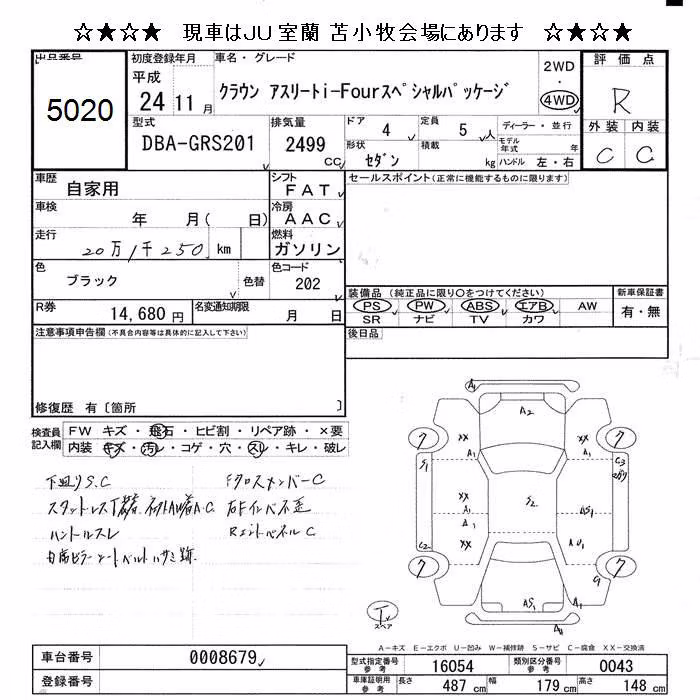 ☆★☆★ 現車はJU室蘭 苫小牧会場にあります ☆★☆★
出品番号
5020
初度登録年月
平成
24 11月
車名・グレード
クラウン アスリートi-Fourスペシャルパッケージ
2WD
・
4WD
評価点
R
外装 内装
C C
型式
DBA-GRS201
排気量
2499
CC
ドア 4
定員 5人
ディーラー・並行
形状
セダン
積載
kg
モデル年式 年
ハンドル 左・右
車歴
自家用
シフト
FAT
セールスポイント(正常に機能するものに限ります)
車検
年 月( 日)
冷房
AAC
走行
20万1千250 km
燃料
ガソリン
色
ブラック
色替
色コード
202
装備品 (純正品に限り○をつけてください)
PS PW ABS エアB AW
SR ナビ TV カワ
新車保証書
有・無
R券
14,680円
名変通知期限
月 日
後日品
注意事項申告欄(不具合内容等は具体的に記入して下さい)
修復歴 有〔箇所 〕
検査員記入欄
FW キズ・飛石・ヒビ割・リペア跡・×要
内装 キズ・汚レ・コゲ・穴・スレ・キレ・破レ
下廻りS.C
Fクロスメンバー C
ハンドルスレ
A1
A2
XX
A1
A1
XX
S1
C3
XX
A1
A1
S2
AS1
XX
AU1
C2
C1
AS1
A1
T
スペア
A-キズ E-エクボ U-凹み W-補修跡 S-サビ C-腐食 XX-交換済
車台番号
0008679
登録番号
型式指定番号
参考
16054
類別区分番号
参考
0043
車庫証明用
参考
長さ 487cm
幅 179cm
高さ 148cm